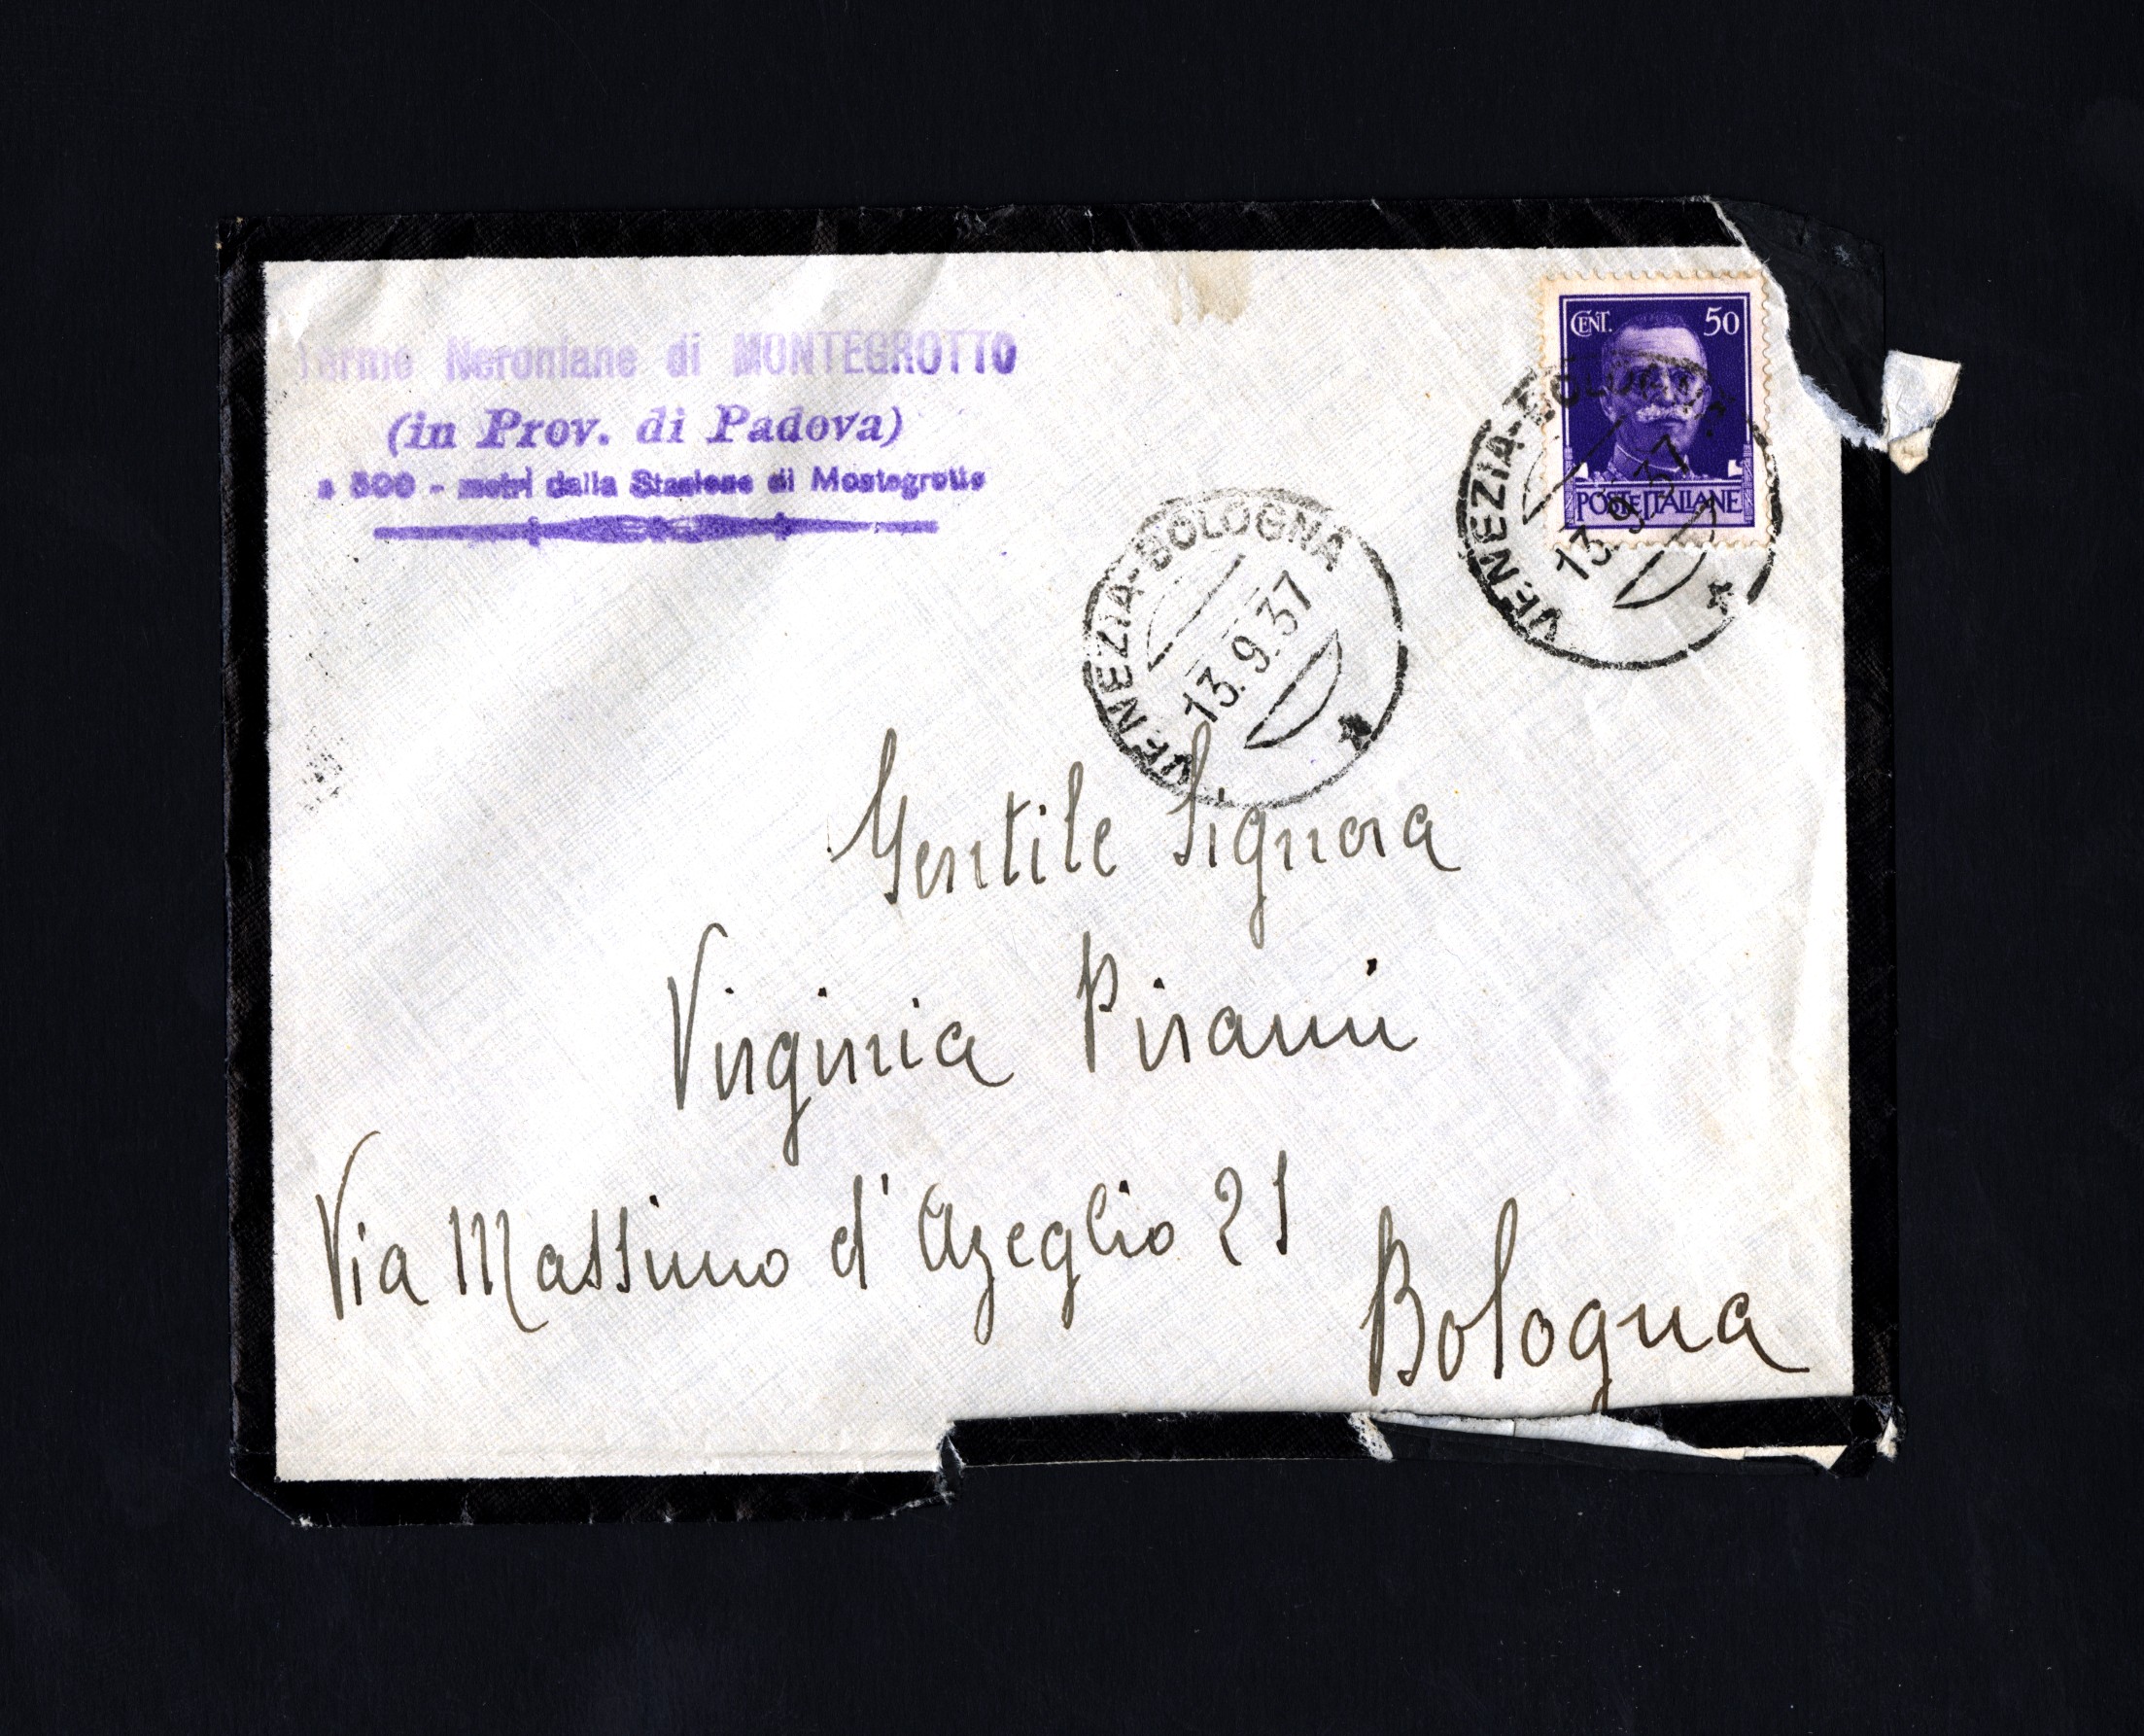 Terme Neroniane di MONTEGROTTO
(in Prov. di Padova)
a 500 - metri dalla Stazione di Montegrotto
CENT. 50
POSTE ITALIANE
VENEZIA-BOLOGNA
13.9.37
VENEZIA-BOLOGNA
13.9.37
Gentile Signora
Virginia Pirami
Via Massimo d'Azeglio 21
Bologna